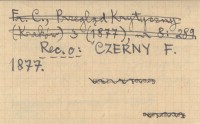 Fr. C., Przegląd Krytyczny
(Kraków) 3 (1877), nr 8: 289.
Rec. o: CZERNY F.
1877.